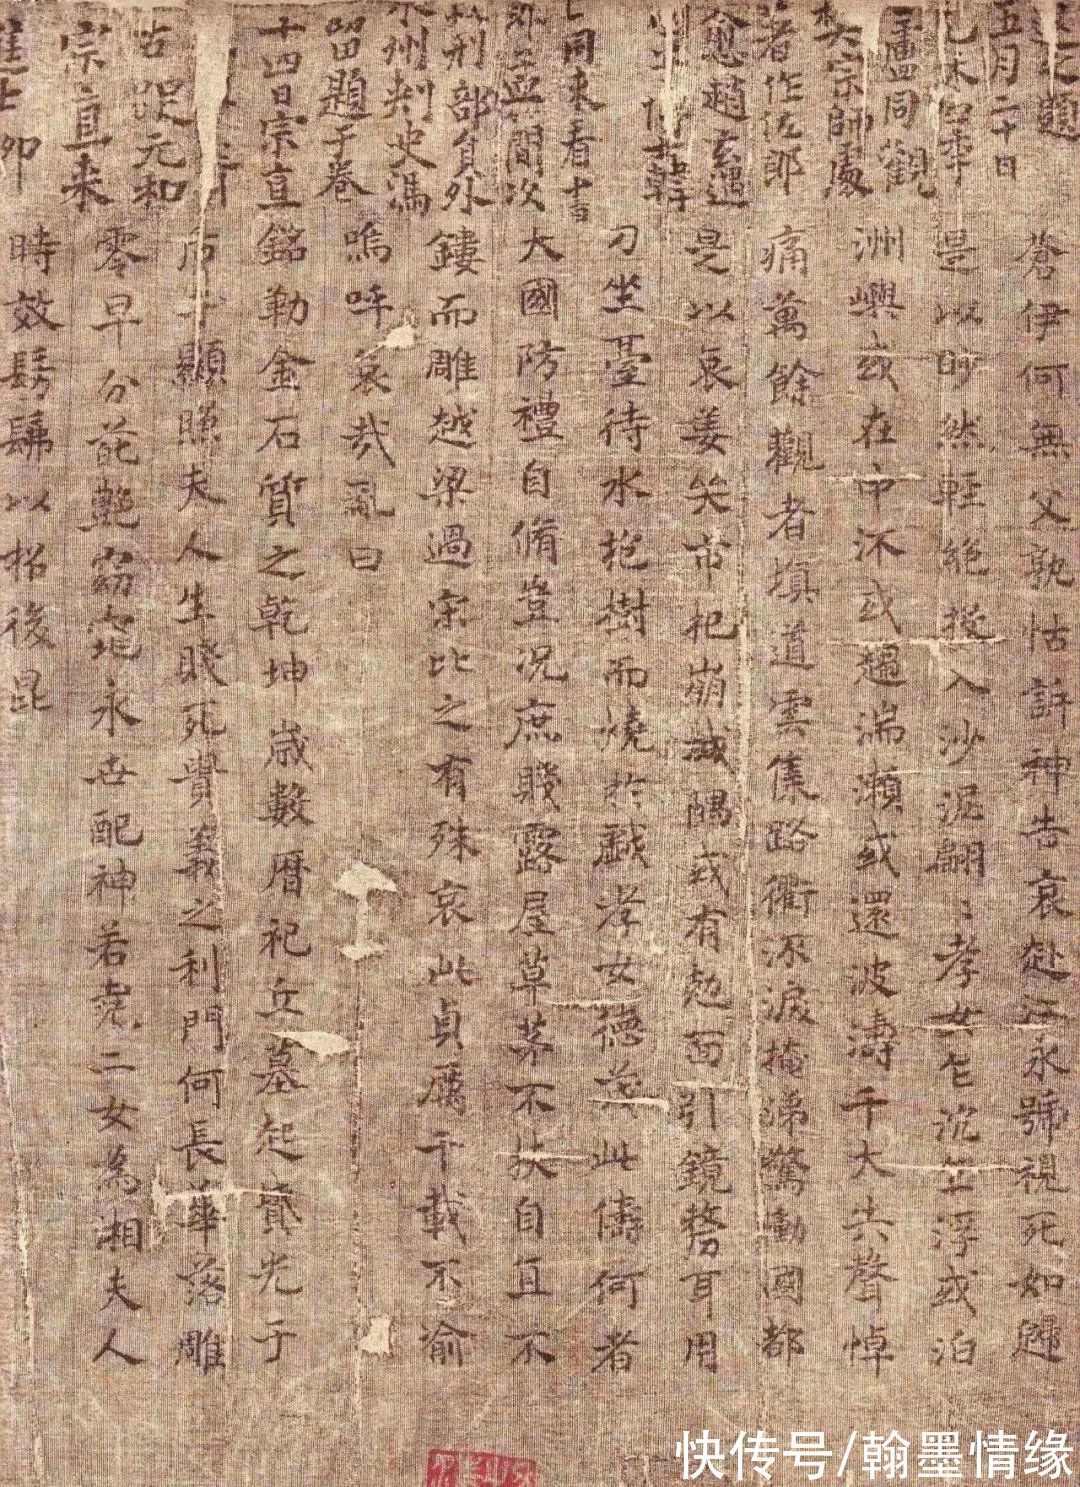 五月二十日
盧同觀
著作佐郎
愈趙玄遇
韓
同來看書
刑部員外
州刺史馮
留題于卷
十四日宗直
元和
宗直来
蒼伊何無父孰怙訴神告哀赴江永號視死如歸
是以眇然輕絕投入沙泥翩〻孝女乍沉乍浮或泊
洲嶼或在中流或趨湍瀨或還波濤千夫失聲悼
痛萬餘觀者填道雲集路衢流淚掩涕驚動國都
是以哀姜哭市杞崩城隅或有剋面引鏡剺耳用
刀坐臺待水抱樹而燒於戲孝女德茂此儔何者
大國防禮自脩豈况庶賤露屋草茅不扶自直不
鏤而雕越梁過宋比之有殊哀此貞厲千載不渝
嗚呼哀哉亂曰
銘勒金石質之乾坤歲數曆祀丘墓起墳光于
后土顯照夫人生賤死貴義之利門何長華落雕
零早分葩艷窈窕永世配神若堯二女為湘夫人
時效髣髴以招後昆
快传号/翰墨情缘